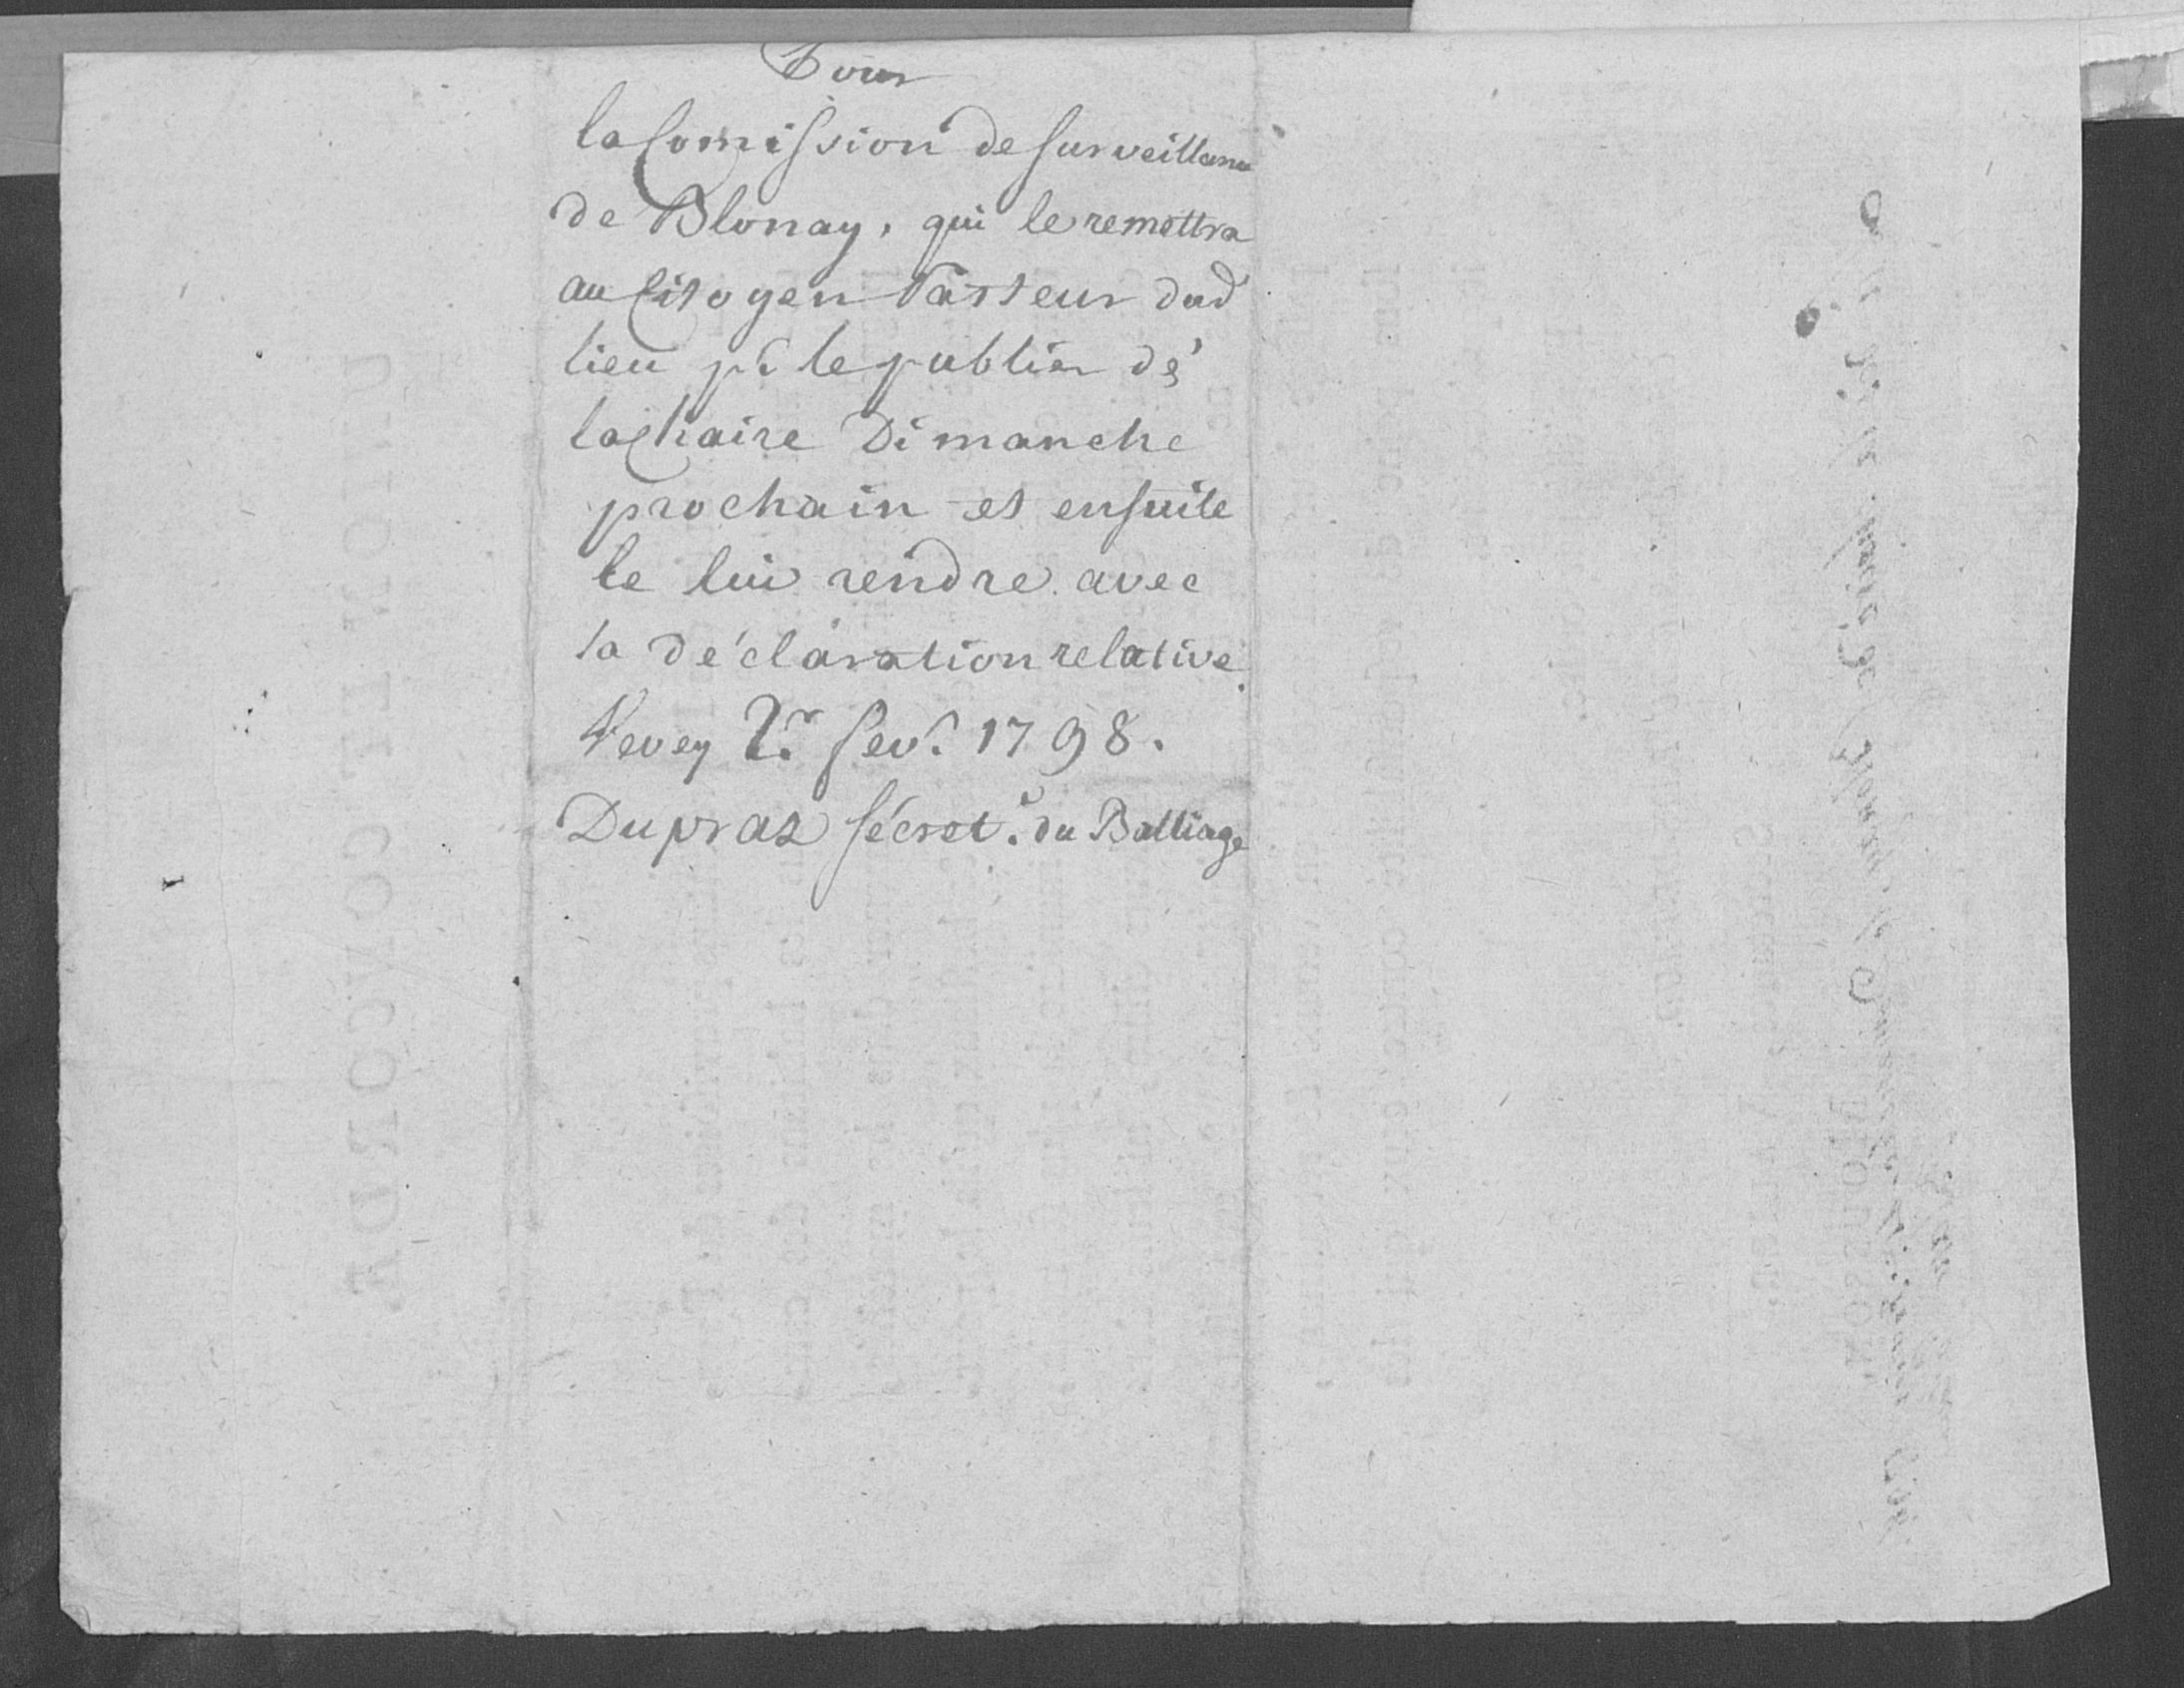 Pour
la Comission de surveillance
de Blonay, qui le remettra
au Citoyen Pasteur dud
lieu pr. le publier dès
la Chaire Dimanche
prochain et ensuite
le lui rendre avec
sa déclaration relative.
Vevey 2r. fev. 1798.
Dupraz sécret.e du Balliage